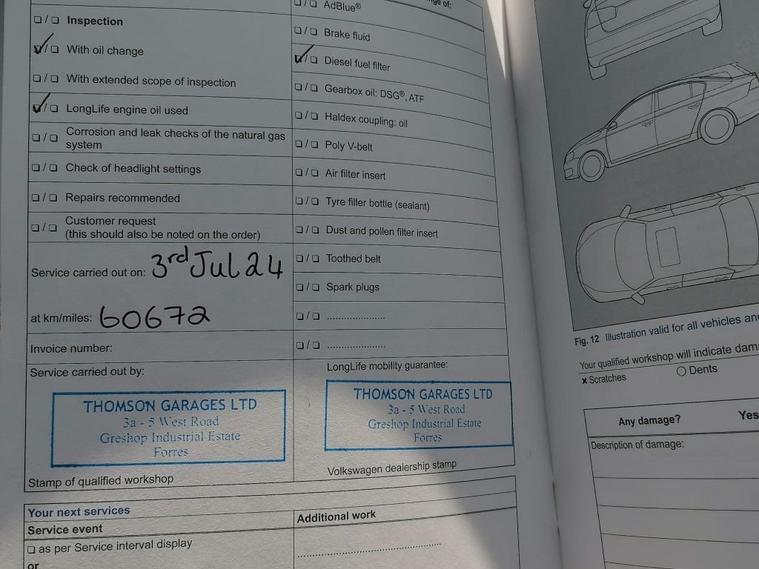 ❏/❏ Inspection
✓/❏ With oil change
❏/❏ With extended scope of inspection
✓/❏ LongLife engine oil used
❏/❏ Corrosion and leak checks of the natural gas
system
❏/❏ Check of headlight settings
❏/❏ Repairs recommended
❏/❏ Customer request
(this should also be noted on the order)
Service carried out on: 3rd Jul 24
at km/miles: 60672
Invoice number:
Service carried out by:
THOMSON GARAGES LTD
3a - 5 West Road
Greshop Industrial Estate
Forres
Stamp of qualified workshop
of:
❏/❏ AdBlue®
❏/❏ Brake fluid
✓/❏ Diesel fuel filter
❏/❏ Gearbox oil: DSG®, ATF
❏/❏ Haldex coupling: oil
❏/❏ Poly V-belt
❏/❏ Air filter insert
❏/❏ Tyre filler bottle (sealant)
❏/❏ Dust and pollen filter insert
❏/❏ Toothed belt
❏/❏ Spark plugs
❏/❏ ....................
❏/❏ ....................
LongLife mobility guarantee:
THOMSON GARAGES LTD
3a - 5 West Road
Greshop Industrial Estate
Forres
Volkswagen dealership stamp
Your next services
Service event
❏ as per Service interval display
or
Additional work
Fig. 12 Illustration valid for all vehicles
Your qualified workshop will indicate
x Scratches
○ Dents
Any damage?
Yes
Description of damage: